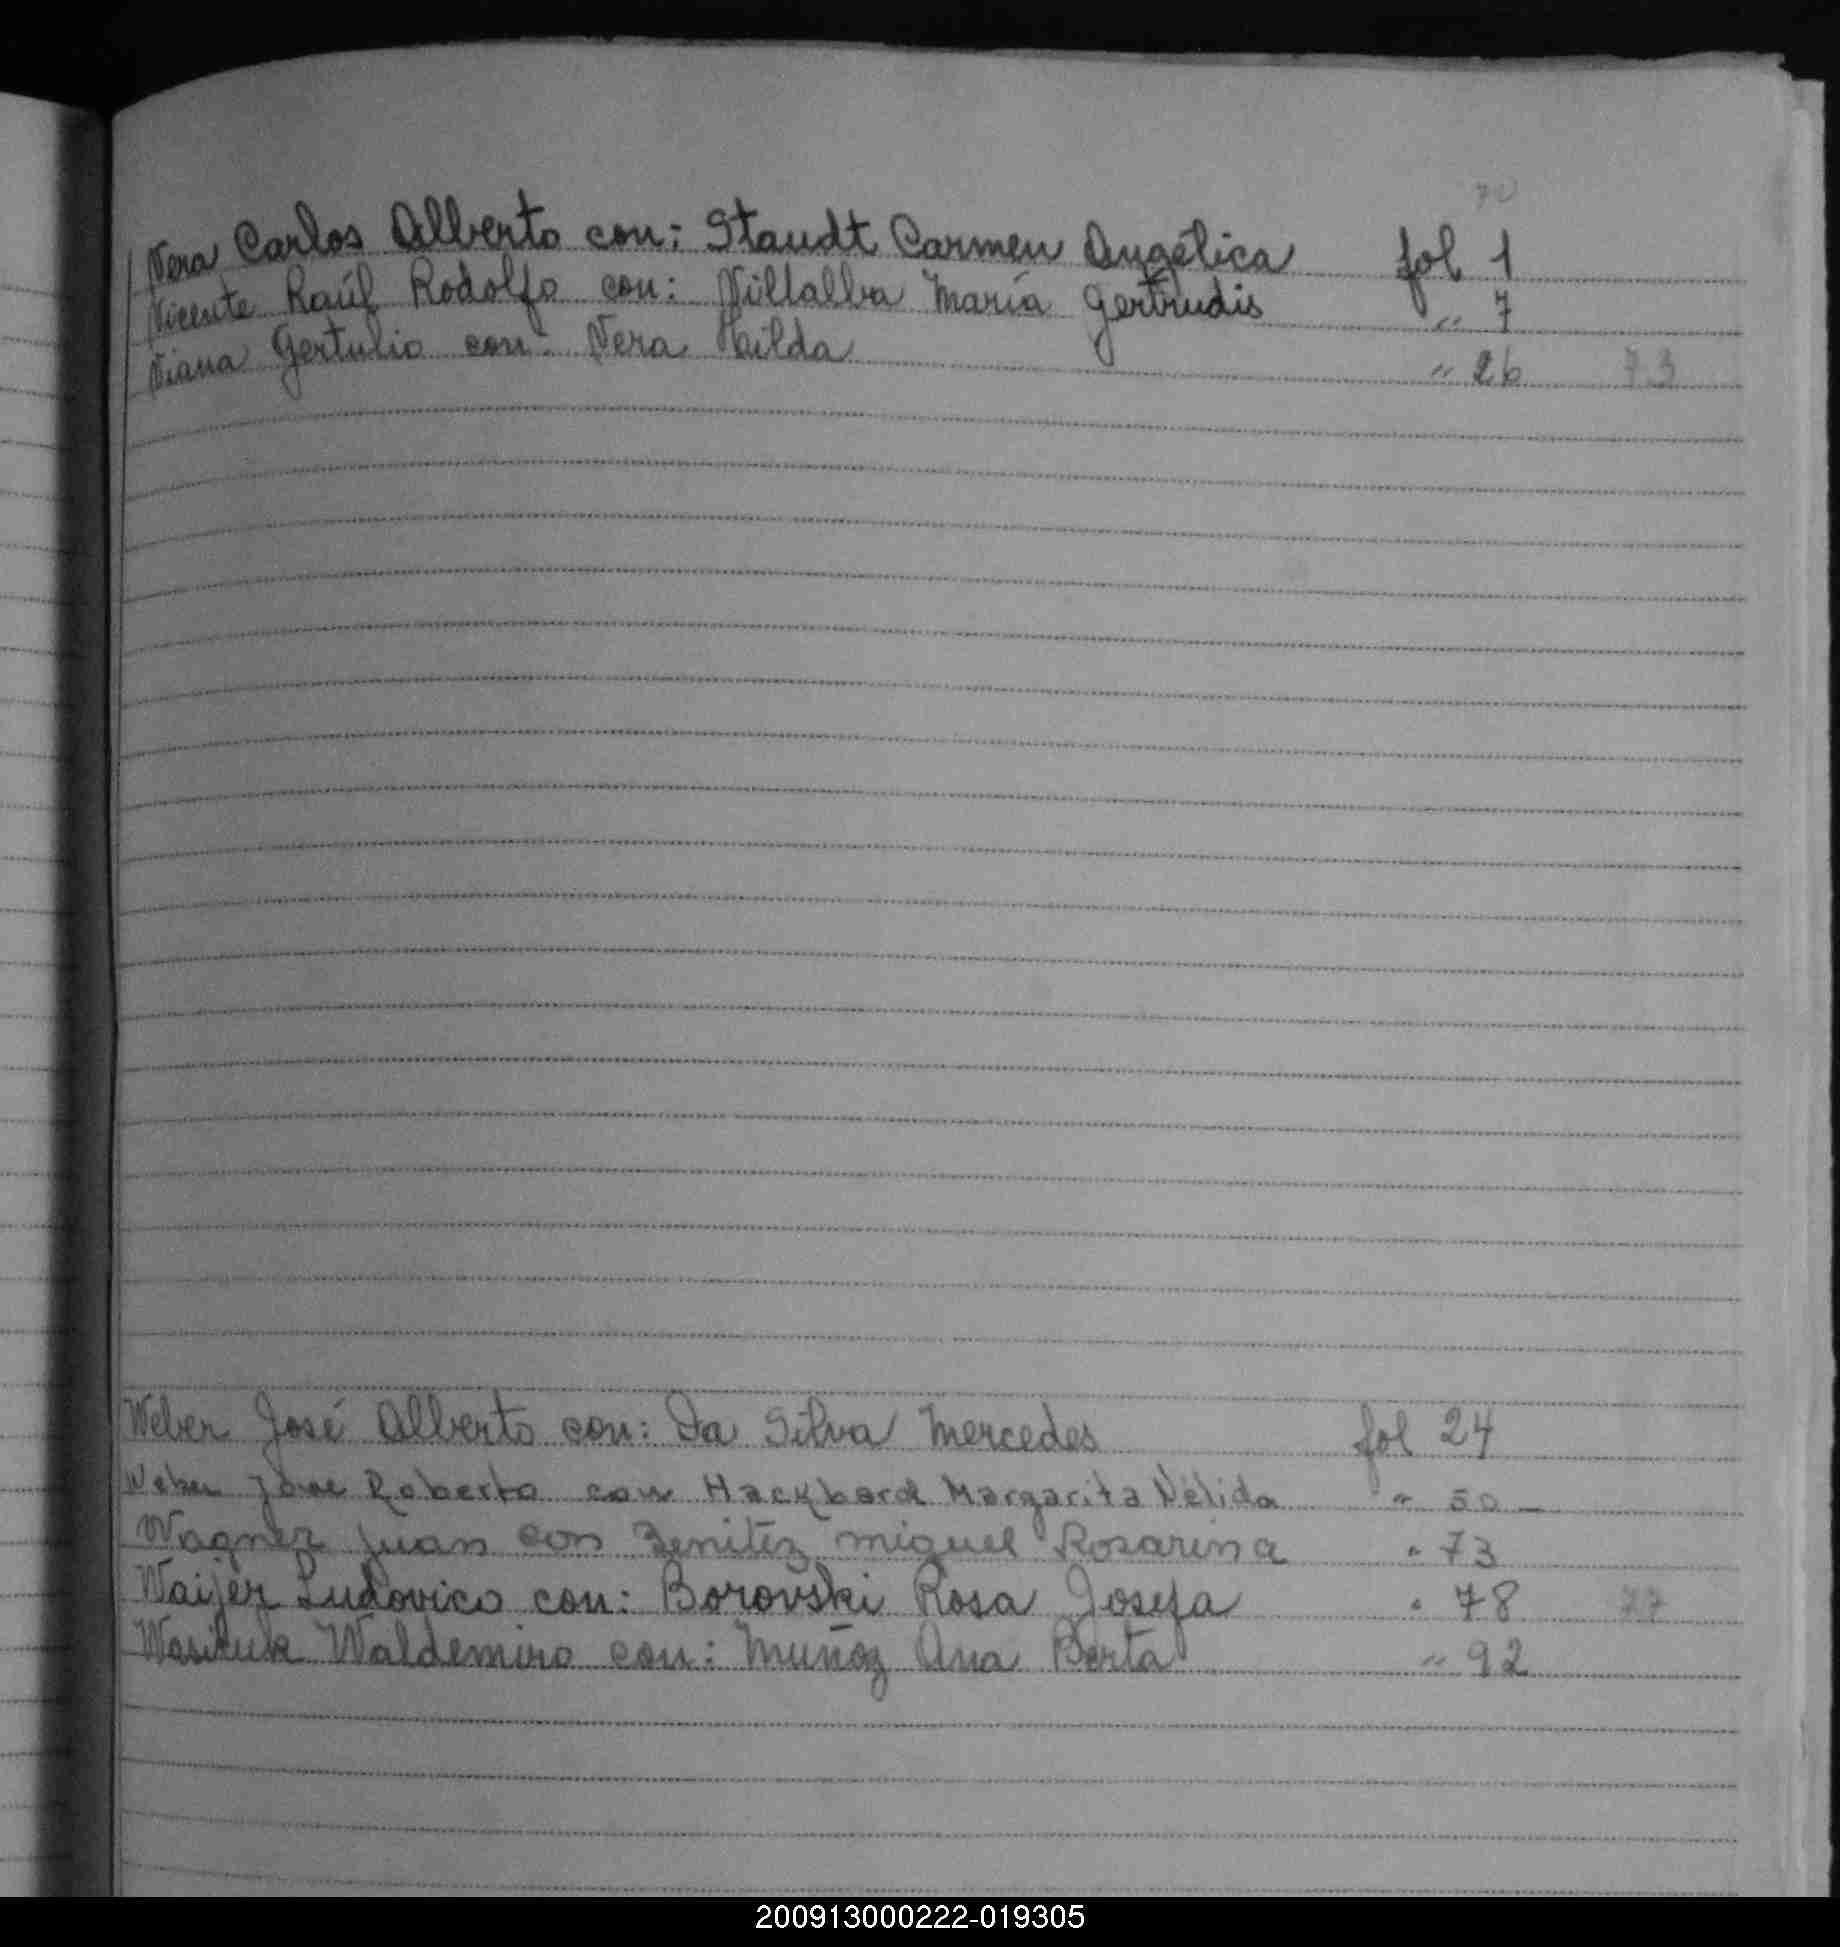 70
Vera Carlos Alberto con: Staudt Carmen Angélica fol 1
Vicente Raúl Rodolfo con: Villalba María Gertrudis " 7
Viana Gertulio con: Vera Hilda " 26 73
Weber José Alberto con: Da Silva Mercedes fol 24
Weber Jose Roberto con Hackbard Margarita Nélida " 50 —
Wagner Juan con Benitez Miguel Rosarina " 73
Waijer Ludovico con: Borovski Rosa Josefa " 78 77
Wasiluk Waldemiro con: Muñoz Ana Berta " 92
200913000222-019305